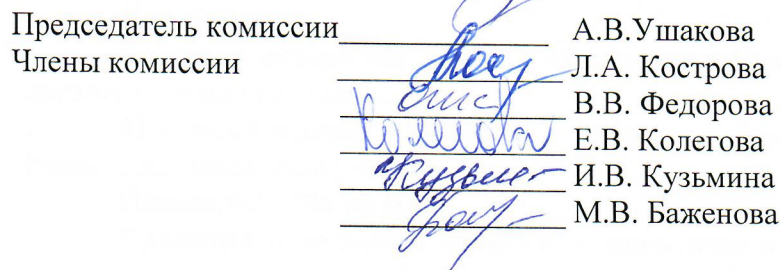 Председатель комиссии А.В.Ушакова
Члены комиссии Л.А. Кострова
В.В. Федорова
Е.В. Колегова
И.В. Кузьмина
М.В. Баженова